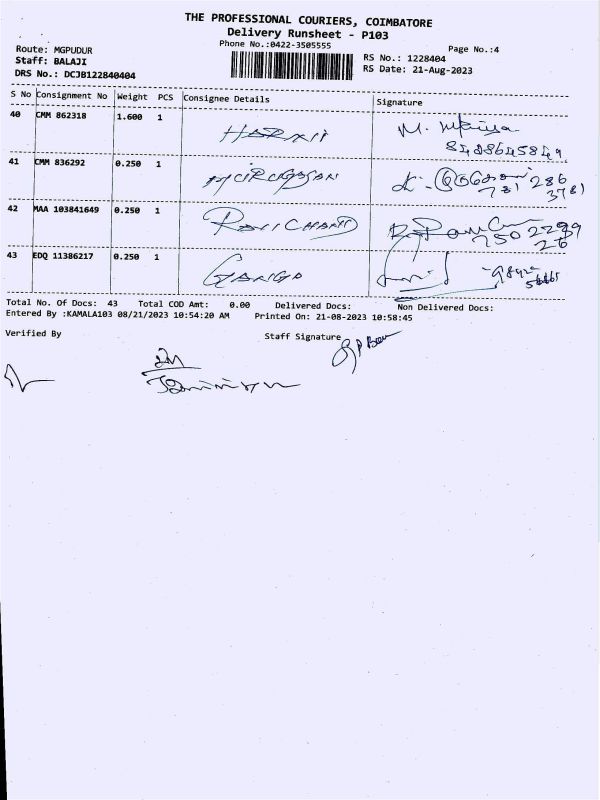 THE PROFESSIONAL COURIERS, COIMBATORE
Delivery Runsheet - P103
Phone No.:0422-3505555
Page No.:4
Route: MGPUDUR
Staff: BALAJI
DRS No.: DCJB122840404
RS No.: 1228404
RS Date: 21-Aug-2023
S No Consignment No Weight PCS Consignee Details Signature
40 CMM 862318 1.600 1
8488645849
41 CMM 836292 0.250 1 MURUGESAN
781 286
3781
42 MAA 103841649 0.250 1 RAVICHAND
750 2299
26
43 EDQ 11386217 0.250 1 GANGA
Total No. Of Docs: 43 Total COD Amt: 0.00 Delivered Docs: Non Delivered Docs:
Entered By :KAMALA103 08/21/2023 10:54:20 AM Printed On: 21-08-2023 10:58:45
Verified By Staff Signature